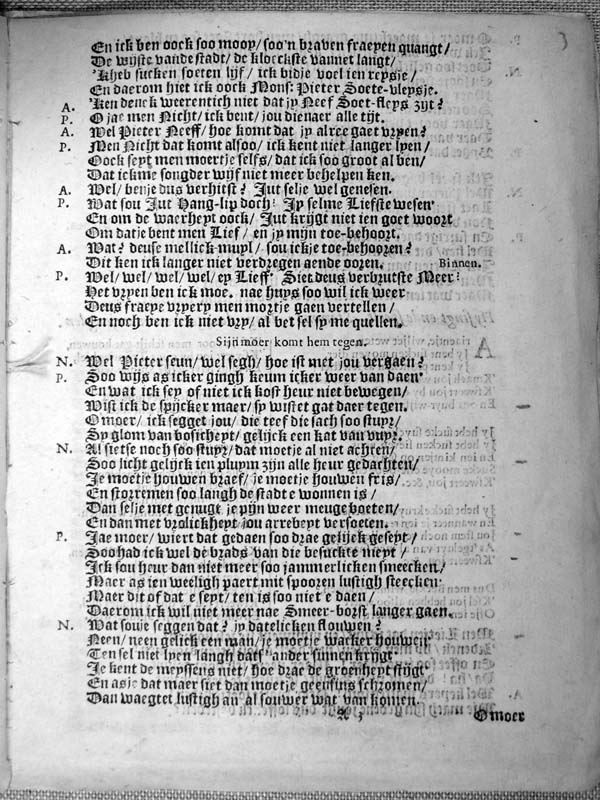 En ick ben oock soo mooy/ soo'n braven fraeyen quangt/
De wijste vande stadt/ de kloeckste vannet langt/
'Kheb sucken soeten lijf/ ick bidje voel ien reysje/
En daerom hiet ick oock Mons: Pieter Soete-vleysje.
A. 'Ken denck weerentich niet dat jy Neef Soet-fleys zijt?
P. O jae men Nicht/ ick bent/ jou dienaer alle tijt.
A. Wel Pieter Neeff/ hoe komt dat jy alree gaet vryen?
P. Men Nicht dat komt alsoo/ ick kent niet langer lyen/
Oock seyt men moertje selfs/ dat ick soo groot al ben/
Dat ickme songder wijf niet meer behelpen ken.
A. Wel/ benje dus verhitst? Jut selje wel genesen.
P. Wat sou Jut Hang-lip doch? Jy selme Liefste wesen
En om de waerheyt oock/ Jut krijgt niet ien goet woort
Om datje bent men Lief/ en jy mijn toe-behoort.
A. Wat? deuse mellick-muyl/ sou ickje toe-behooren?
Dit ken ick langer niet verdregen aende ooren. Binnen.
P. Wel/ wel/ wel/ wel/ ey Lieff' Siet deus verbrutste Meer:
Het vryen ben ick moe. nae huys soo wil ick weer
Deus fraeye vryery men mortje gaen vertellen/
En noch ben ick niet vry/ al het sel sy me quellen.
Sijn moer komt hem tegen.
N. Wel Pieter seun/ wel segh/ hoe ist met jou vergaen?
P. Soo wijs as icker gingh keum icker weer van daen
En wat ick sey of niet ick kost heur niet bewegen/
Wist ick de spijcker maer/ sy wist et gat daer tegen.
O moer/ ick segget jou/ die teef die sach soo stuyr/
Sy glom van bostheyt/ gelijck een kat van vuyr.
N. Al sietse noch soo stuyr/ dat moetje al niet achten/
Soo licht gelijck ien pluym zijn alle heur gedachten/
Je moetje houwen braef/ je moetje houwen fris/
En storremen soo langh de stadt e wonnen is/
Dan selje met genugt je pijn weer meuge boeten/
En dan met vrolickheyt jou arrebeyt versoeten.
P. Jae moer/ wiert dat gedaen soo drae gelijck geseyt/
Soo had ick wel de brads van die besuckte meyt/
Ick sou heur dan niet meer soo jammerlicken smeecken/
Maer as ien weeligh paert mit spooren lustigh steecken:
Maer dit of dat e seyt/ ten is soo niet e daen/
Daerom ick wil niet meer nae Smeer-borst langer gaen.
N. Wat souje seggen dat? jy datelicken flouwen?
Neen/ neen gelick een man/ je moetje wacker houwen
Ten sel niet lyen langh dats' ander sinnen krijgt.
Je kent de meyssens niet/ hoe drae de groenheyt stijgt
En asje dat maer siet dan moetje geensins schromen/
Dan waegtet lustigh an al souwer wat van komen.
A 3 O moer
3